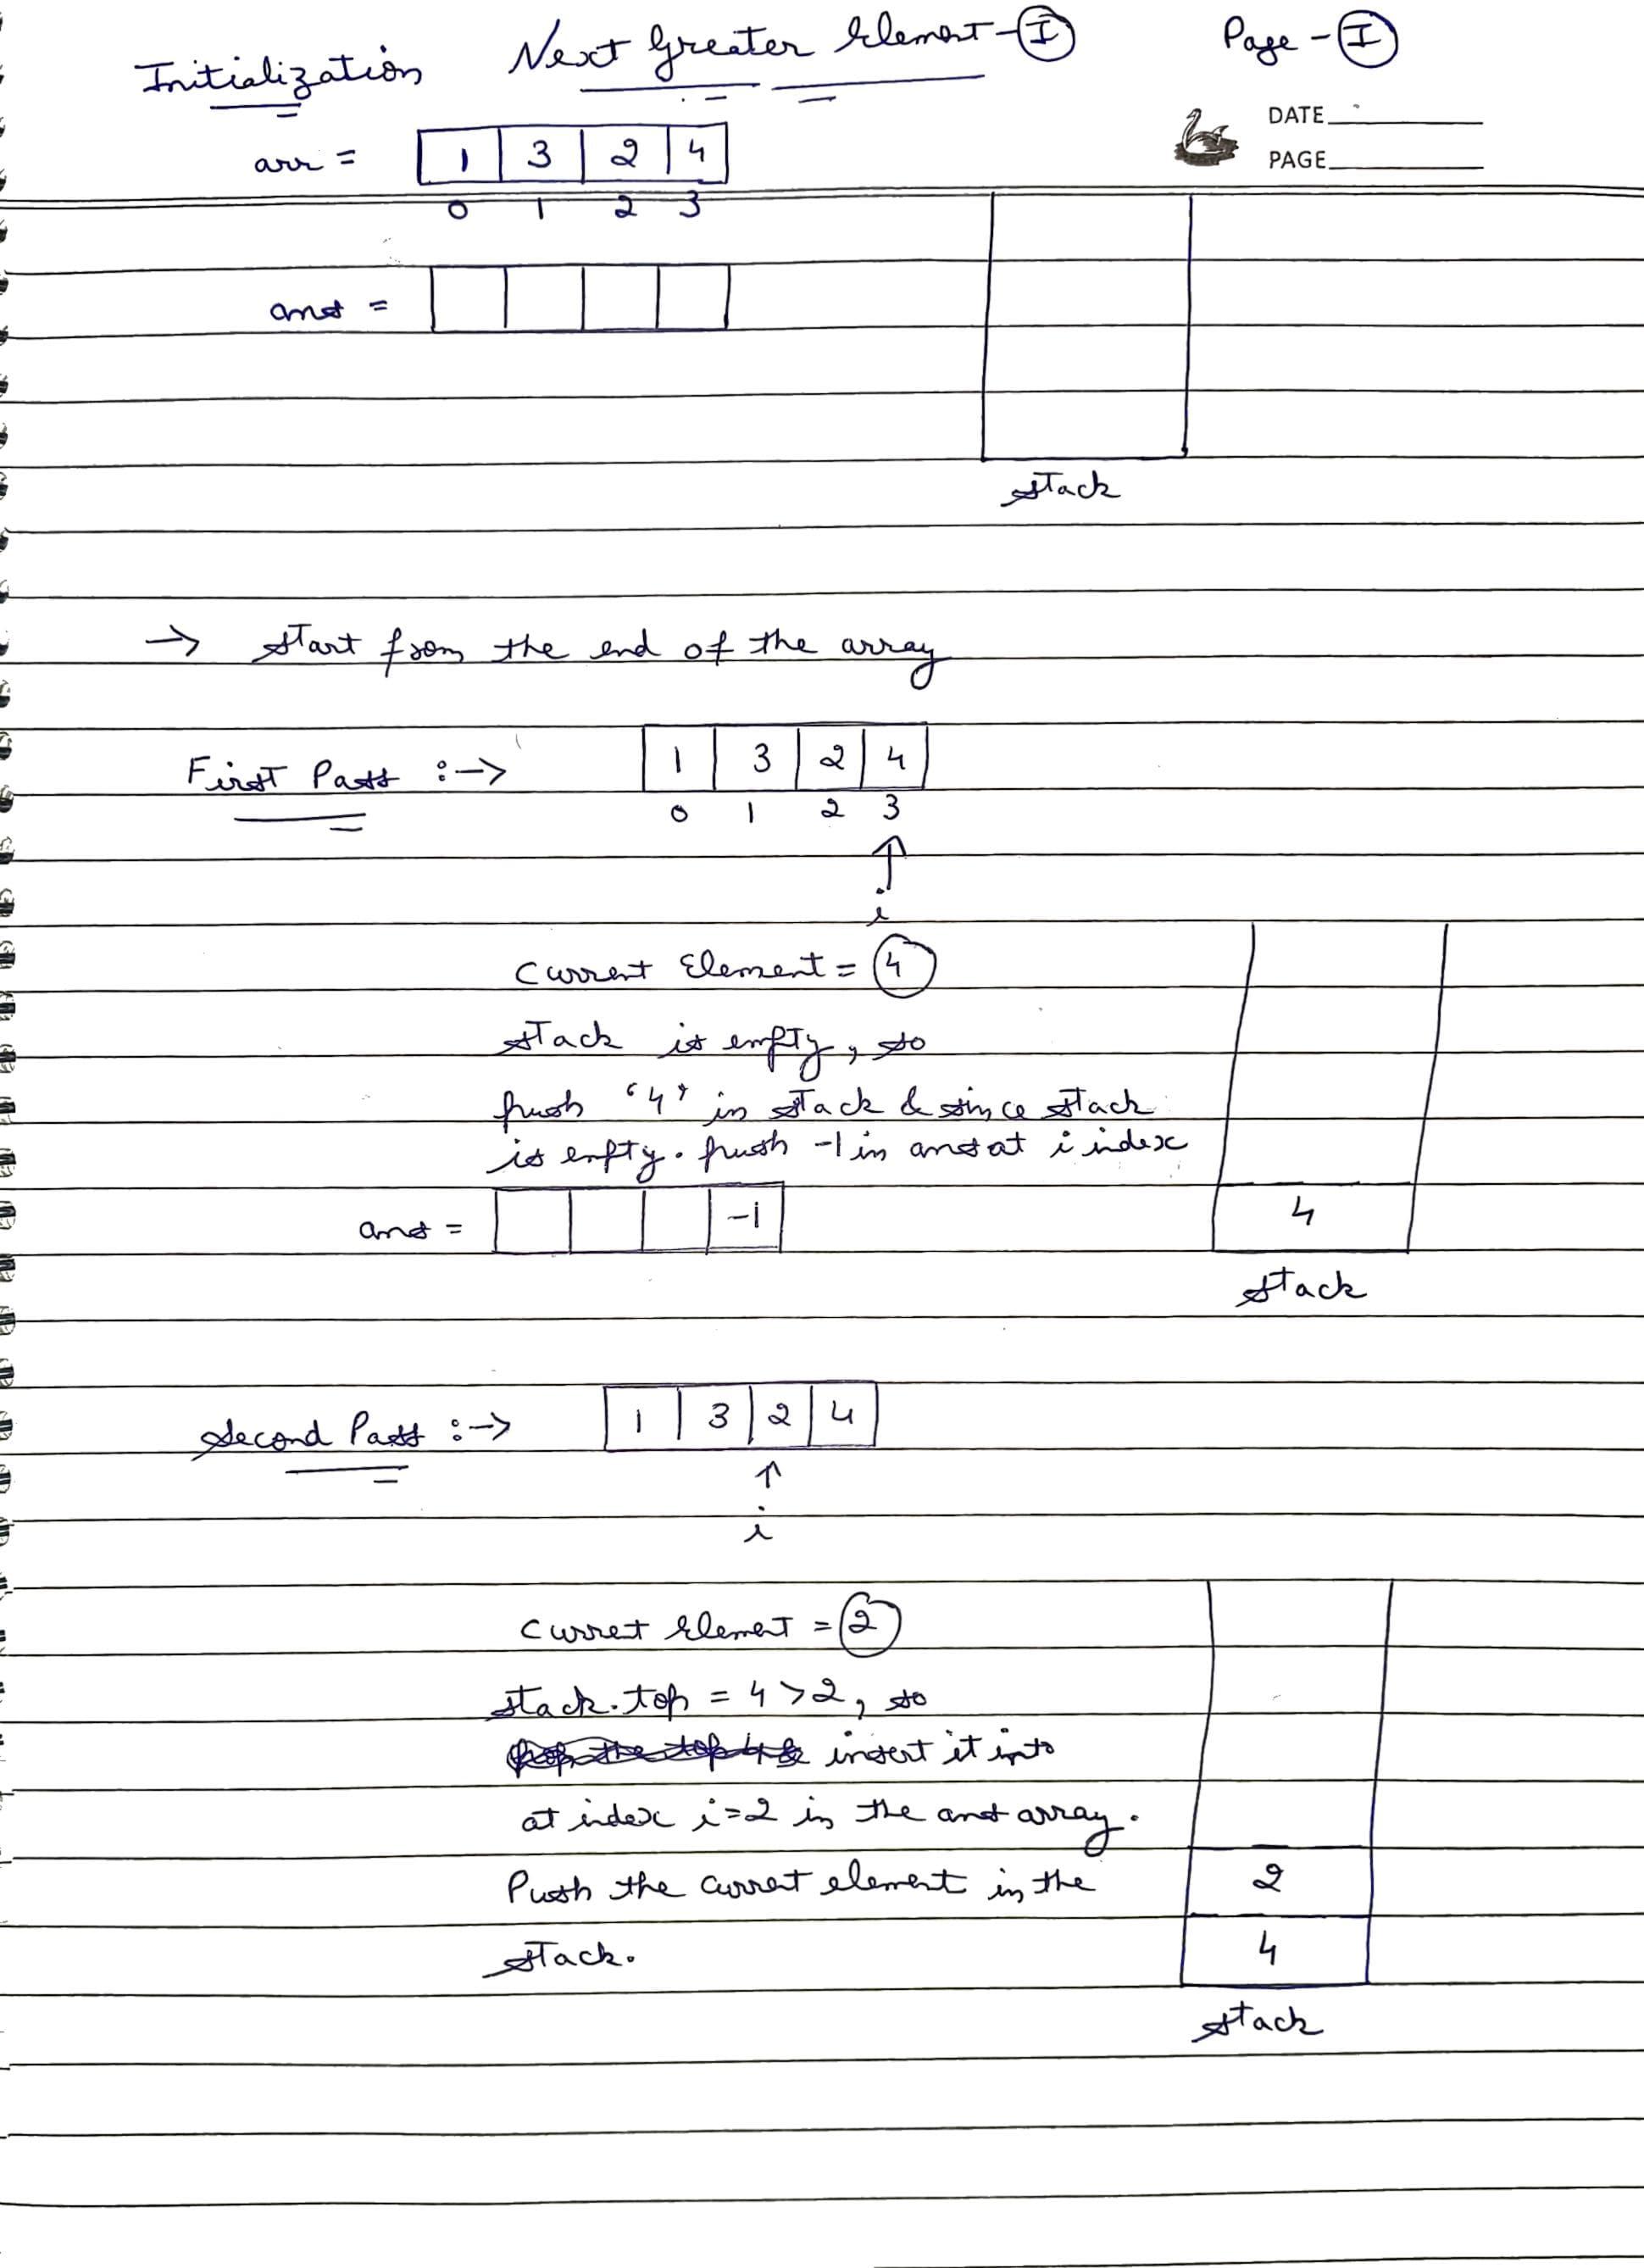 Next Greater Element-I
Page - I
Initialization
DATE
PAGE
arr = 1 3 2 4
0 1 2 3
ans =
stack
→ start from the end of the array
First Pass :→ 1 3 2 4
0 1 2 3
↑
i
Current Element = 4
stack is empty, so
push '4' in stack & since stack
is empty. push -1 in ans at i index
ans = -1
4
stack
Second Pass :→ 1 3 2 4
↑
i
Curret Element = 2
stack.top = 4 > 2, so
insert it into
at index i=2 in the ans array.
Push the curret element in the
stack.
2
4
stack